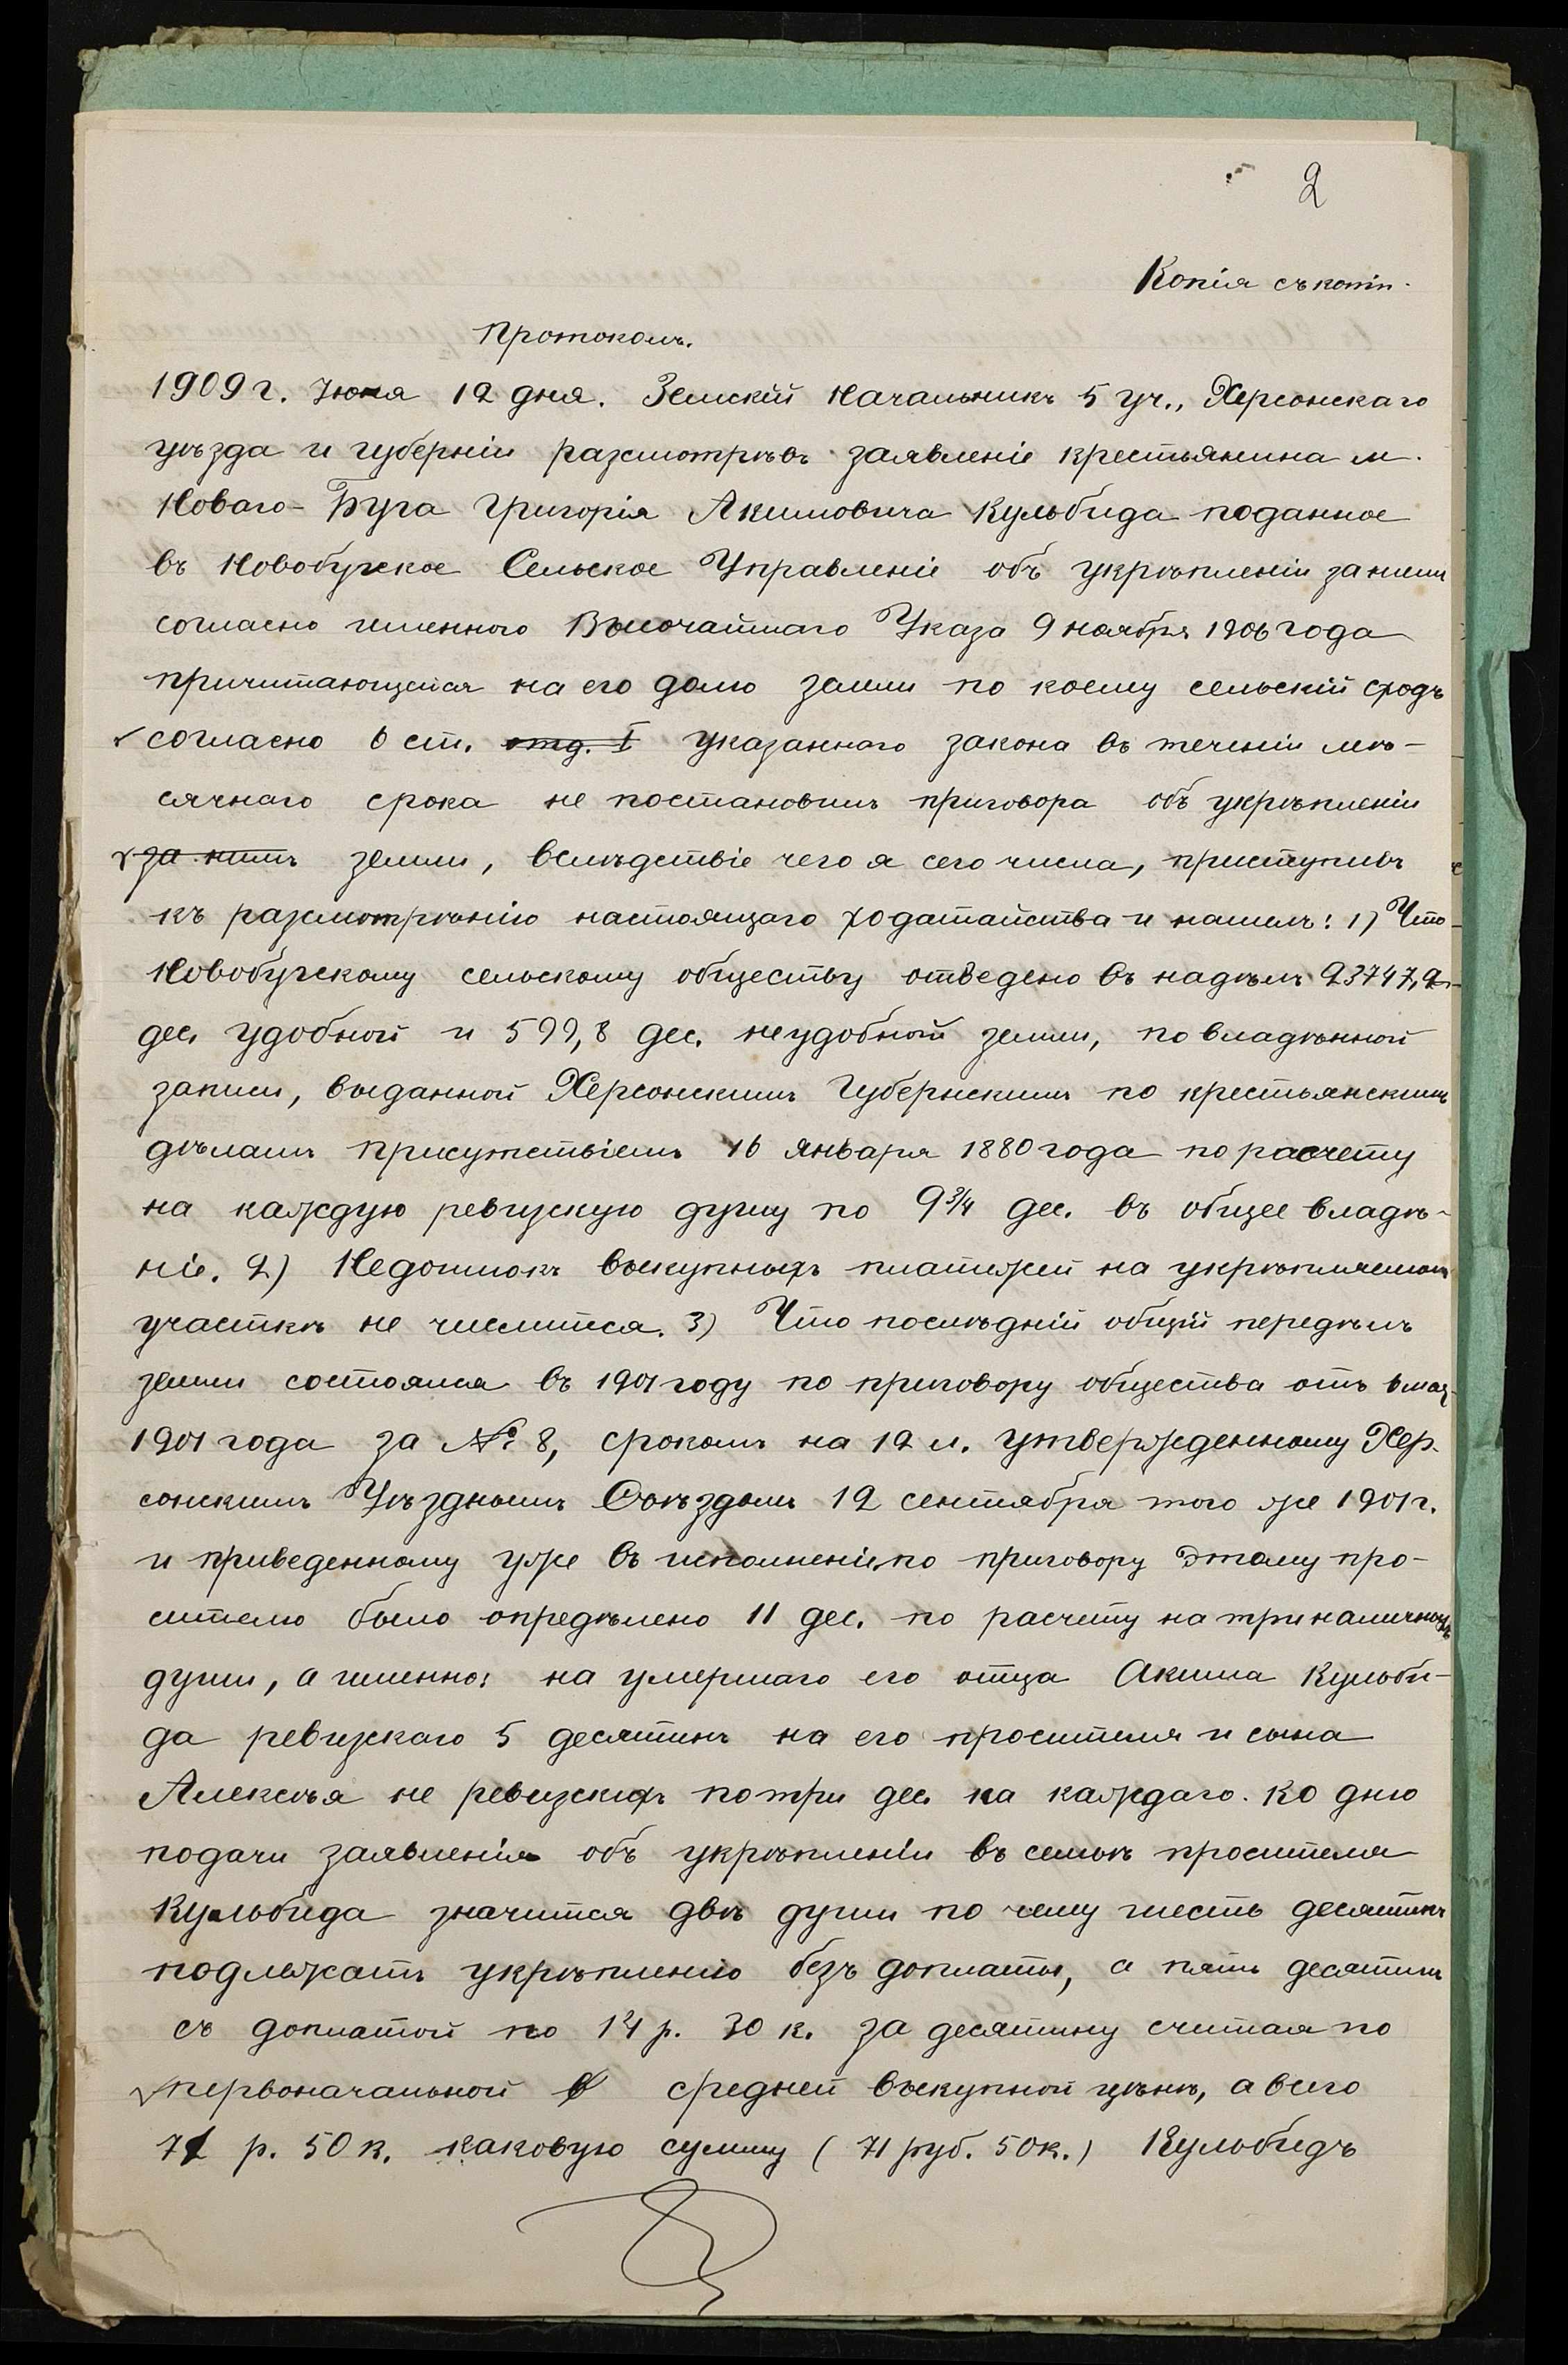 2
Копія съ копіи.
Протоколъ.
1909 г. Іюня 12 дня. Земскій Начальникъ 5 уч., Херсонскаго
уѣзда и губерніи разсмотрѣвъ заявленіе крестьянина м.
Новаго-Буга Григорія Акимовича Кульбида поданное
въ Новобугское Сельское Управленіе объ укрѣпленіи за нимъ
согласно именного Высочайшаго Указа 9 ноября 1906 года
причитающейся на его долю земли по коему сельскій сходъ
согласно 6 ст. отд. I указаннаго закона въ теченіи мѣ-
сячнаго срока не постановилъ приговора объ укрѣпленіи
за нимъ земли, вслѣдствіе чего я сего числа, приступивъ
къ разсмотрѣнію настоящаго ходатайства и нашелъ: 1) Что
Новобугскому сельскому обществу отведено въ надѣлъ 23747,2
дес. удобной и 599,8 дес. неудобной земли, по владѣнной
записи, выданной Херсонскимъ Губернскимъ по крестьянскимъ
дѣламъ присутствіемъ 16 января 1880 года по расчету
на каждую ревизскую душу по 9 3/4 дес. въ общее владѣ-
ніе. 2) Недоимокъ выкупныхъ платежей на укрѣпляемомъ
участкѣ не числится. 3) Что послѣдній общій передѣлъ
земли состоялся въ 1901 году по приговору общества отъ 6 мая
1901 года за № 8, срокомъ на 12 л. утвержденному Хер-
сонскимъ Уѣзднымъ Съѣздомъ 12 сентября того же 1901 г.
и приведенному уже въ исполненіе, по приговору этому про-
сителю было опредѣлено 11 дес. по расчету на три наличныхъ
души, а именно: на умершаго его отца Акима Кульби-
да ревизскаго 5 десятинъ на его просителя и сына
Алексѣя не ревизскихъ по три дес. на каждаго. Ко дню
подачи заявленія объ укрѣпленіи въ семьѣ просителя
Кульбида значится двѣ души по чему шесть десятинъ
подлежатъ укрѣпленію безъ доплаты, а пять десятинъ
съ доплатой по 14 р. 30 к. за десятину считая по
первоначальной средней выкупной цѣнѣ, а всего
71 р. 50 к. каковую сумму (71 руб. 50 к.) Кульбидъ